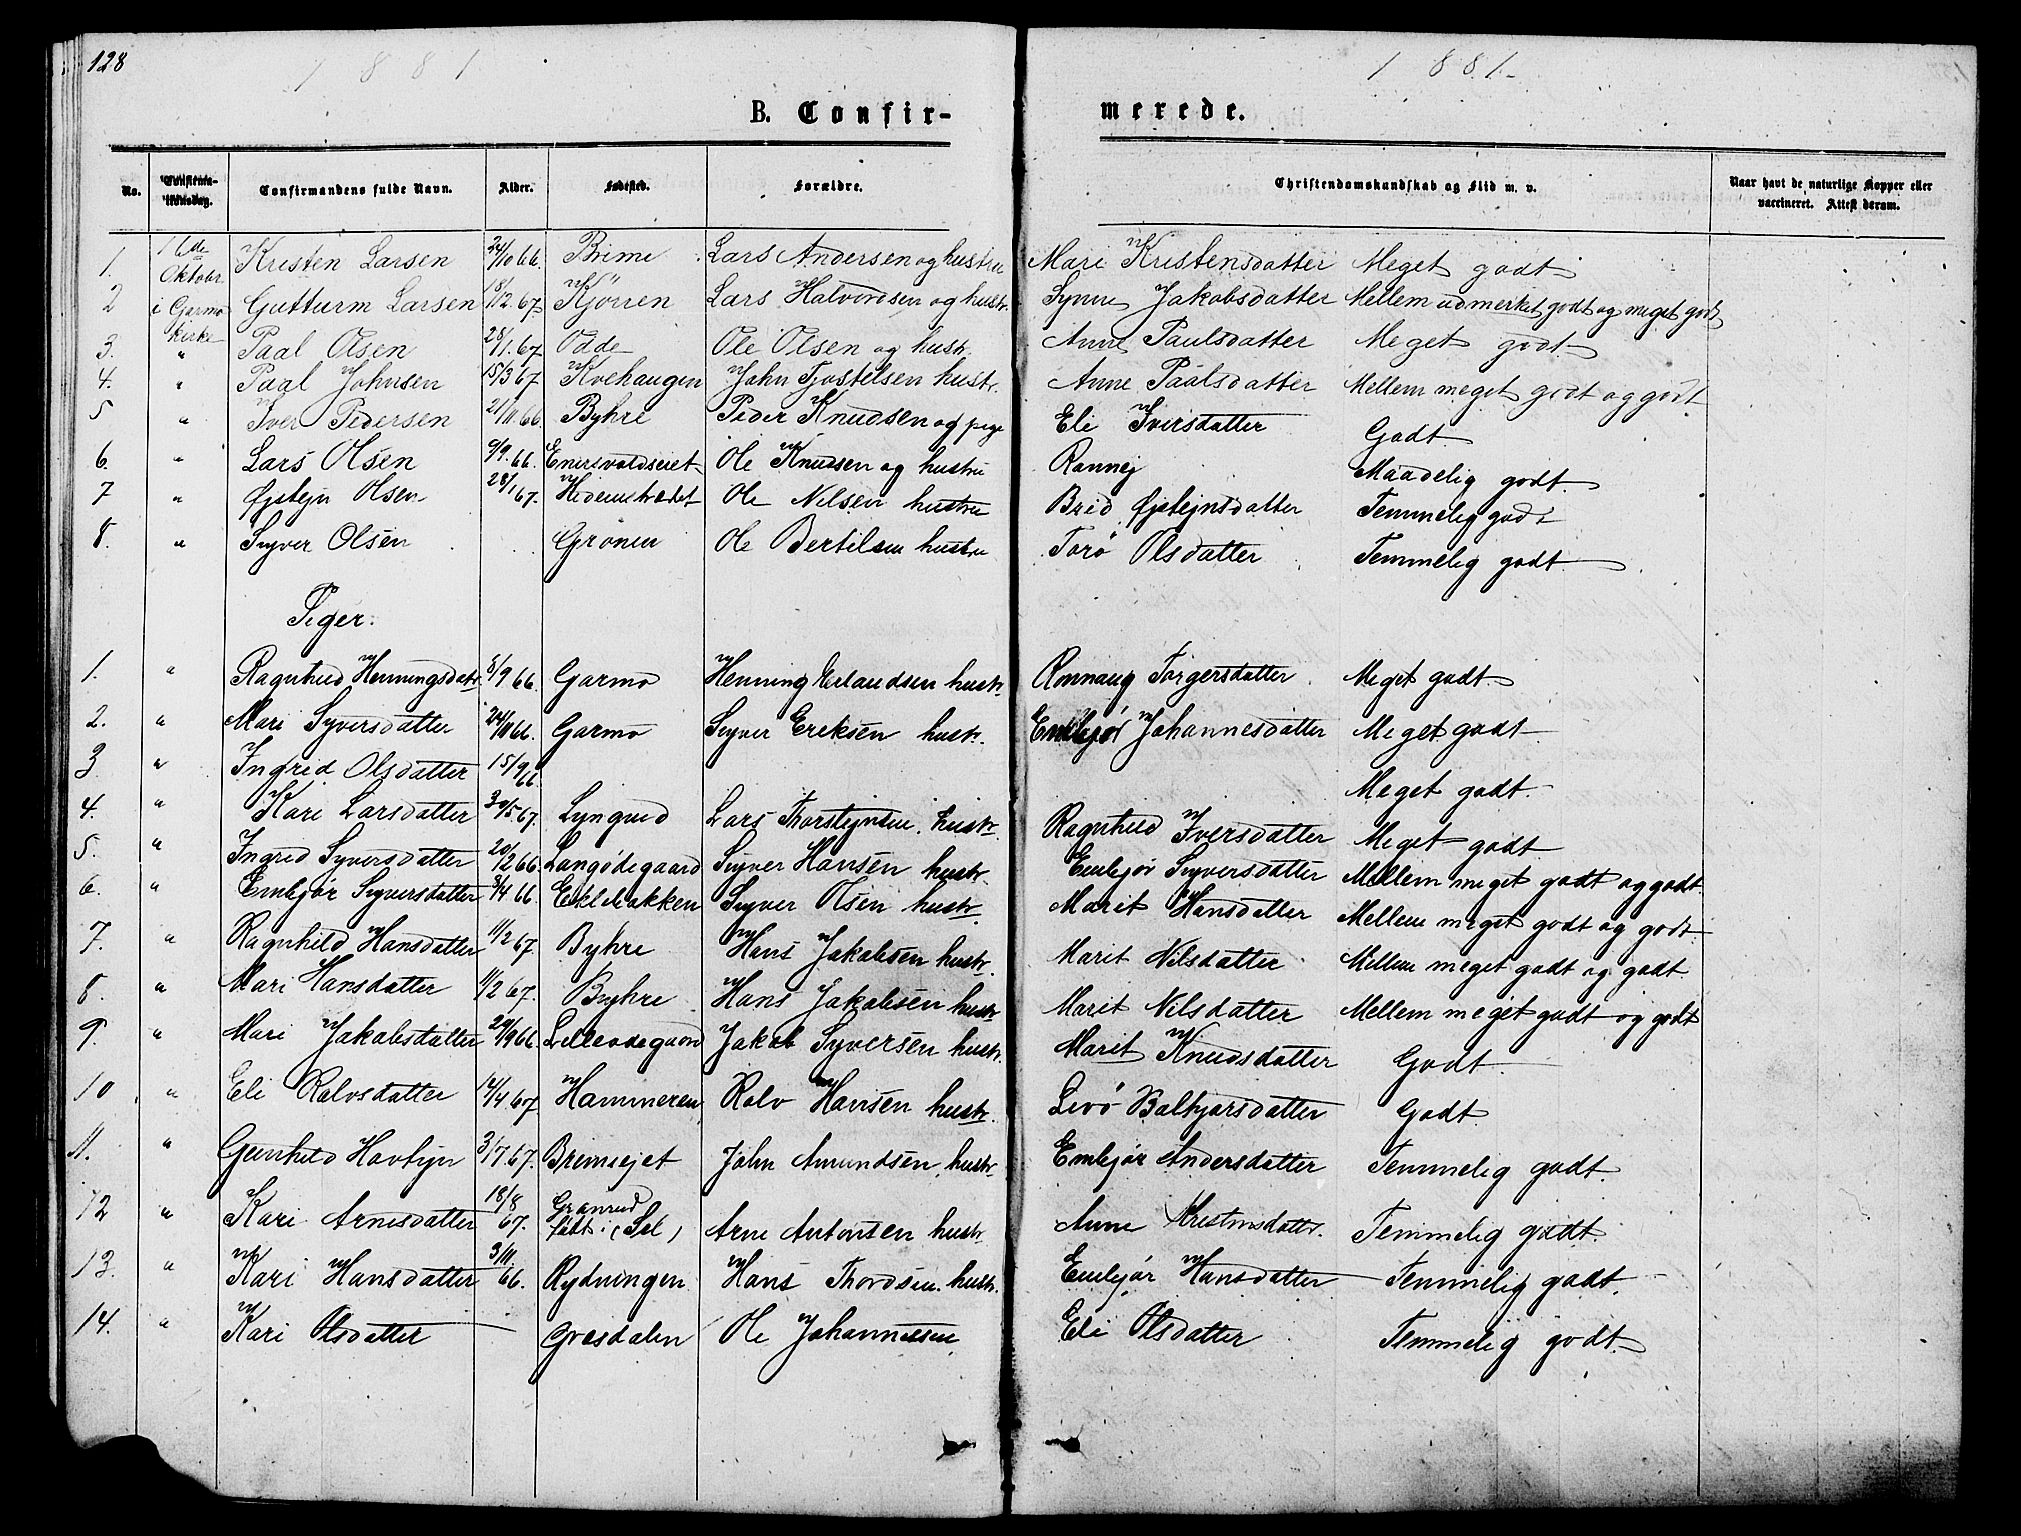 128
1881
1881.
B. Confir-
merede.
No. Confirmandens fulde Navn. Alder. Fødested. Forældre. Christendomskundskab og Flid m. v. Naar havt de naturlige Kopper eller
vaccineret. Attest derom.
1. 16de Oktobr Kristen Larsen 24/10 66. Brime Lars Andersen og hustru Mari Kristensdatter Meget godt
2 i Garmo Gutturm Larsen 18/12. 67 Kjörren Lars Halvorsen og hustr. Synne Jakobsdatter Mellem udmerket godt og meget godt
kirke
3. " Paal Olsen 28/1. 67 Odde Ole Olsen og hustr. Anne Paulsdatter Meget godt
4. " Paal Johnsen 15/3 67 Kvehaugen John Tjostelsen hustr. Anne Paalsdatter Mellem meget godt og godt
5 " Iver Pedersen 21/11. 66 Byhre Peder Knudsen og pige Eli Iversdatter Godt
6. " Lars Olsen 9/9. 66. Ole Knudsen og hustru Rannej Maadelig godt.
7 " Øjstejn Olsen 28/1 67. Ole Nilsen hustru Brid Øjstejnsdatter Temmelig godt
8. " Syver Olsen Grönen Ole Bertilsen hustru Torö Olsdatter Temmelig godt
Piger.
1. " Ragnhild Henningsdatr. 8/9 66. Garmo Henning Erlandsen hustr. Ronnaug Torgersdatter Meget godt.
2. " Mari Syversdatter 24/11 66. Garmo Syver Eriksen hustr. Embjør Johannesdatter Meget godt
3 " Ingrid Olsdatter 15/9 66 Meget godt.
4. " Kari Larsdatter 30/5 67. Lyngved Lars Thorstejnsen. hustr Ragnhild Iversdatter Meget godt
5. " Ingrid Syversdatter 20/2 66. Langødegaard Syver Hansen hustr. Embjør Syversdatter Mellem meget godt og godt.
6. " Embjør Syversdatter 3/4 66. Eklebakken Syver Olsen hustr. Marit Hansdatter Mellem meget godt og godt.
7. " Ragnhild Hansdatter 11/2 67. Byhre Hans Jakobsen hustr. Marit Nilsdatter Mellem meget godt og godt.
8. " Mari Hansdatter 11/2 67. Byhre Hans Jakobsen hustr Marit Nilsdatter Mellem meget godt og godt
9. " Mari Jakobsdatter 29/9 66. Jakob Syversen hustr. Marit Knudsdatter Godt.
10 " Eli Rolvsdatter 12/4 67 Hammeren Rolv Hansen hustr. Livö Balbjorsdatter Godt.
11. " Gunhild Havtyn 3/7. 67. Brimsejet John Amundsen hustr. Embjør Andersdatter Temmelig godt.
12 " Kari Arnesdatter 18/8 67. Granrud født i (Sel) Arne Antonsen hustr. Anne Kristensdattr. Temmelig godt.
13. " Kari Hansdatter 3/11 66. Rydningen Hans Thordsen. hustr. Embjør Hansdatter Temmelig godt.
14. " Kari Olsdatter Gresdalen Ole Johannessen Eli Olsdatter Temmelig godt.